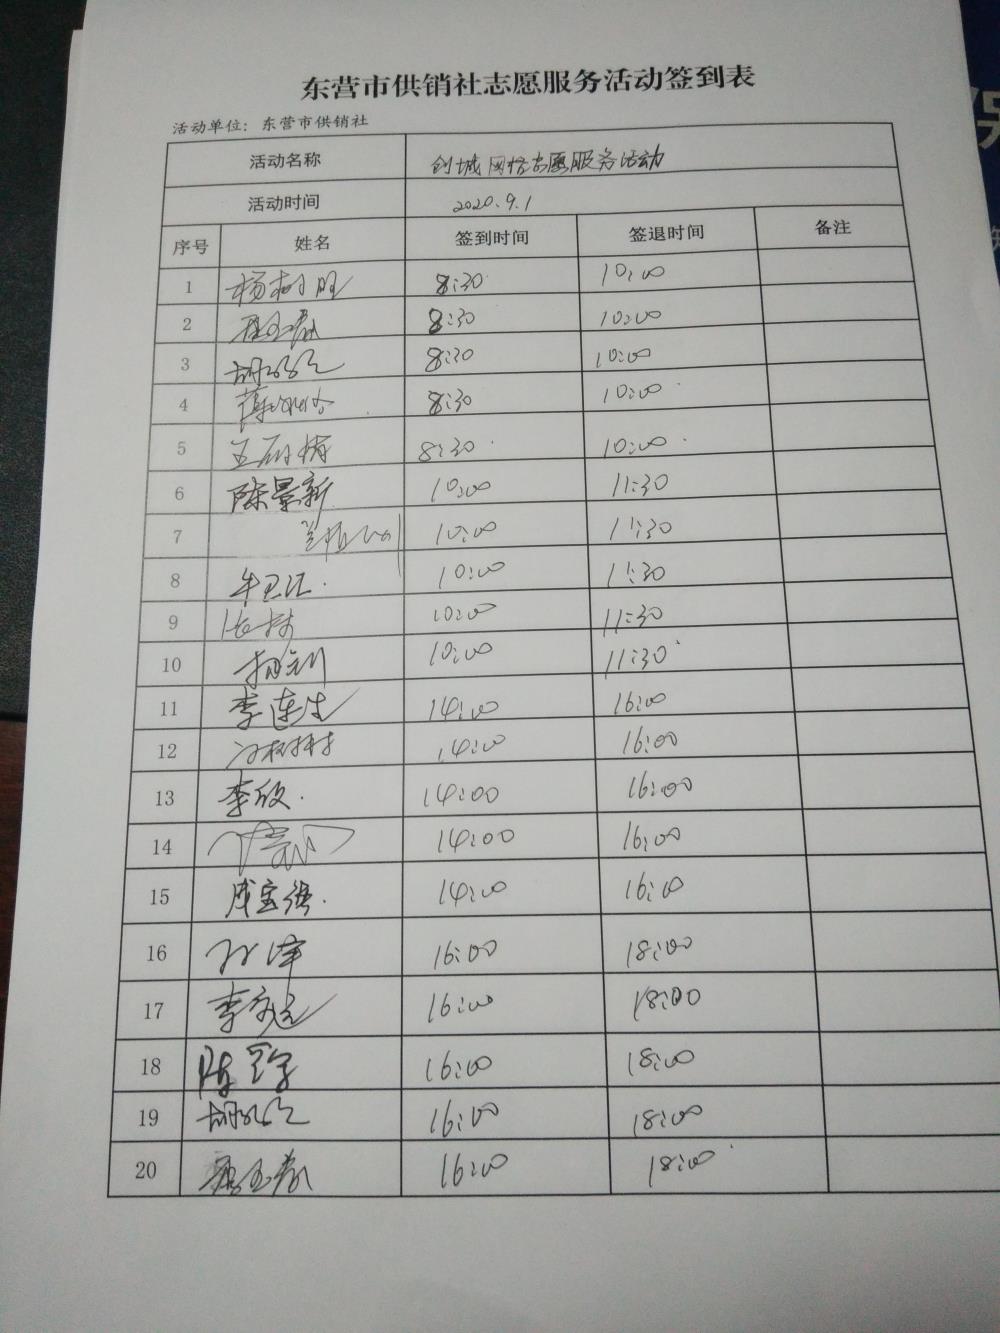 东营市供销社志愿服务活动签到表
活动单位：东营市供销社
活动名称 创城网格志愿服务活动
活动时间 2020.9.1
序号 姓名 签到时间 签退时间 备注
1 杨树旺 8:30 10:00
2 8:30 10:00
3 8:30 10:00
4 8:30 10:00
5 8:30 10:00
6 陈景新 10:00 11:30
7 10:00 11:30
8 牟卫江 10:00 11:30
9 10:00 11:30
10 10:00 11:30
11 李莲生 14:00 16:00
12 14:00 16:00
13 李欣 14:00 16:00
14 14:00 16:00
15 成宝强 14:00 16:00
16 16:00 18:00
17 李 16:00 18:00
18 陈 16:00 18:00
19 16:00 18:00
20 16:00 18:00